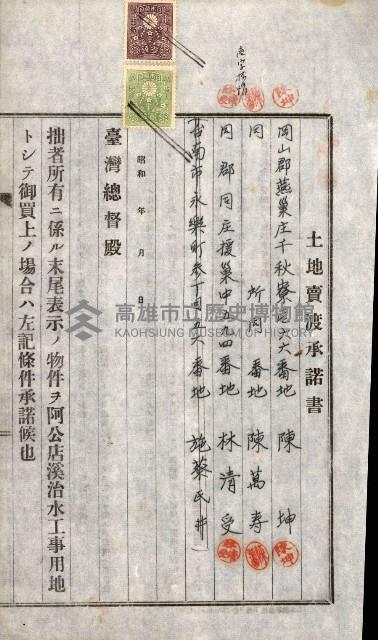 土地賣渡承諾書
岡山郡燕巢庄千秋寮一六六番地 陳 坤
同 所同 番地 陳萬壽
同郡同庄援巢中五九四番地 林清受
台南市永樂町參丁目五六番地 施蔡氏井
昭和 年 月 日
臺灣總督殿
拙者所有ニ係ル末尾表示ノ物件ヲ阿公店溪治水工事用地
トシテ御買上ノ場合ハ左記條件承諾候也
高雄市立歷史博物館
KAOHSIUNG MUSEUM OF HISTORY